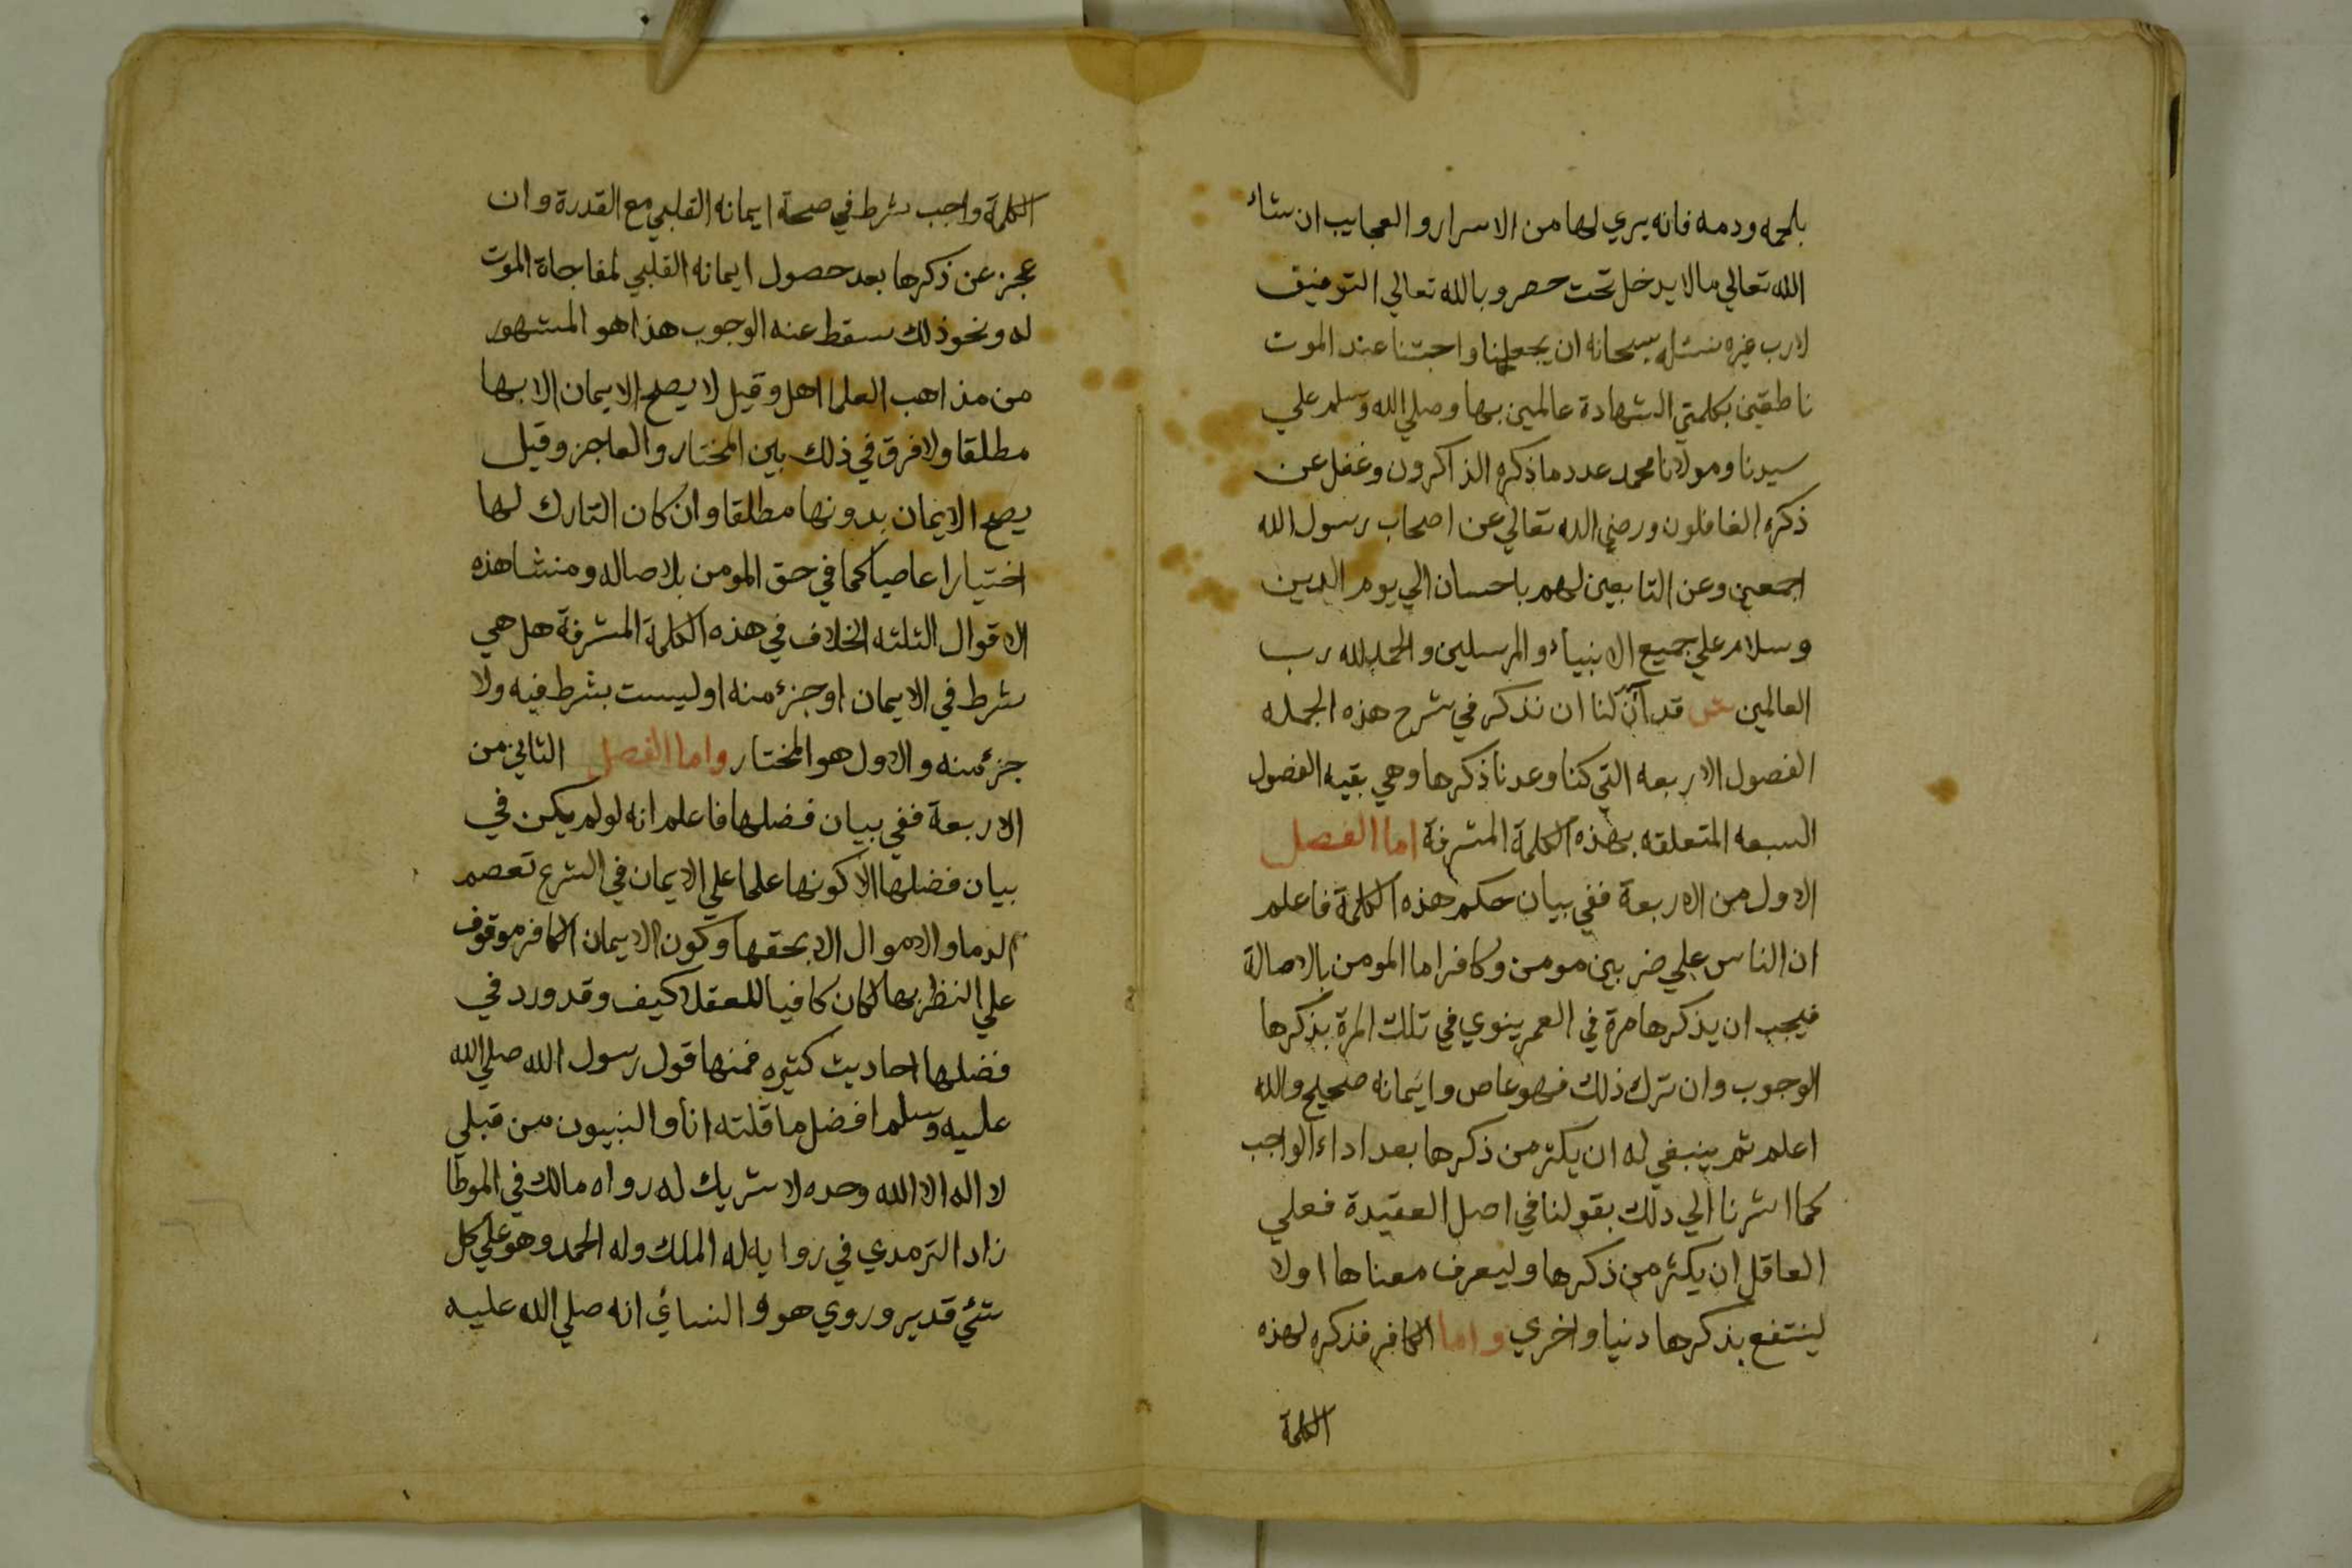 بلحمه ودمه فانه يري لها من الاسرار والعجايب ان شاء
الله تعالي مالا يدخل تحت حصر وبالله تعالي التوفيق
لارب غيره نسئله سبحانه ان يجعلنا واحبتنا عند الموت
ناطقين بكلمتي الشهادة عالمين بها وصلي الله وسلم علي
سيدنا ومولانا محمد عدد ما ذكره الذاكرون وغفل عن
ذكره الغافلون ورضي الله تعالي عن اصحاب رسول الله
اجمعين وعن التابعين لهم باحسان الي يوم الدين
وسلام علي جميع الانبياء والمرسلين والحمد لله رب
العالمين ش قد آن لنا ان نذكر في شرح هذه الجمله
الفصول الاربعه التي كنا وعدنا ذكرها وهي بقيه الفصول
السبعه المتعلقه بهذه الكلمة المشرفة اما الفصل
الاول من الاربعة ففي بيان حكم هذه الكلمة فاعلم
ان الناس علي ضربين مومن وكافر اما المومن بالاصالة
فيجب ان يذكرها مرة في العمر ينوي في تلك المرة بذكرها
الوجوب وان ترك ذلك فهو عاص وايمانه صحيح والله
اعلم ثم ينبغي له ان يكثر من ذكرها بعد اداء الواجب
كما اشرنا الي ذلك بقولنا في اصل العقيدة فعلي
العاقل ان يكثر من ذكرها وليعرف معناها اولا
لينتفع بذكرها دنيا واخري واما الكافر فذكره لهذه
الكلمة
الكلمة واجب شرط في صحة ايمانه القلبي مع القدرة وان
عجز عن ذكرها بعد حصول ايمانه القلبي لمفاجاة الموت
له ونحو ذلك سقط عنه الوجوب هذا هو المشهور
من مذاهب العلما اهل وقيل لا يصح الايمان الا بها
مطلقا ولا فرق في ذلك بين المختار والعاجز وقيل
يصح الايمان بدونها مطلقا وان كان التارك لها
اختيارا عاصيا كما في حق المومن بلاصاله ومنشا هذه
الاقوال الثلثه الخلاف في هذه الكلمة المشرفة هل هي
شرط في الايمان او جزء منه او ليست بشرط فيه ولا
جزء منه والاول هو المختار واما الفصل الثاني من
الاربعة ففي بيان فضلها فاعلم انه لو لم يكن في
بيان فضلها الا كونها علما علي الايمان في الشرع تعصم
الدما والاموال الا بحقها وكون الايمان الكافر موقوف
علي النظر بها لكان كافيا للعقلا كيف وقد ورد في
فضلها احاديث كثيره فمنها قول رسول الله صلي الله
عليه وسلم افضل ما قلته انا والنبيون من قبلي
لا اله الا الله وحده لا شريك له رواه مالك في الموطا
زاد الترمدي في روايه له الملك وله الحمد وهو علي كل
شئ قدير وروي هو والنسائي انه صلي الله عليه